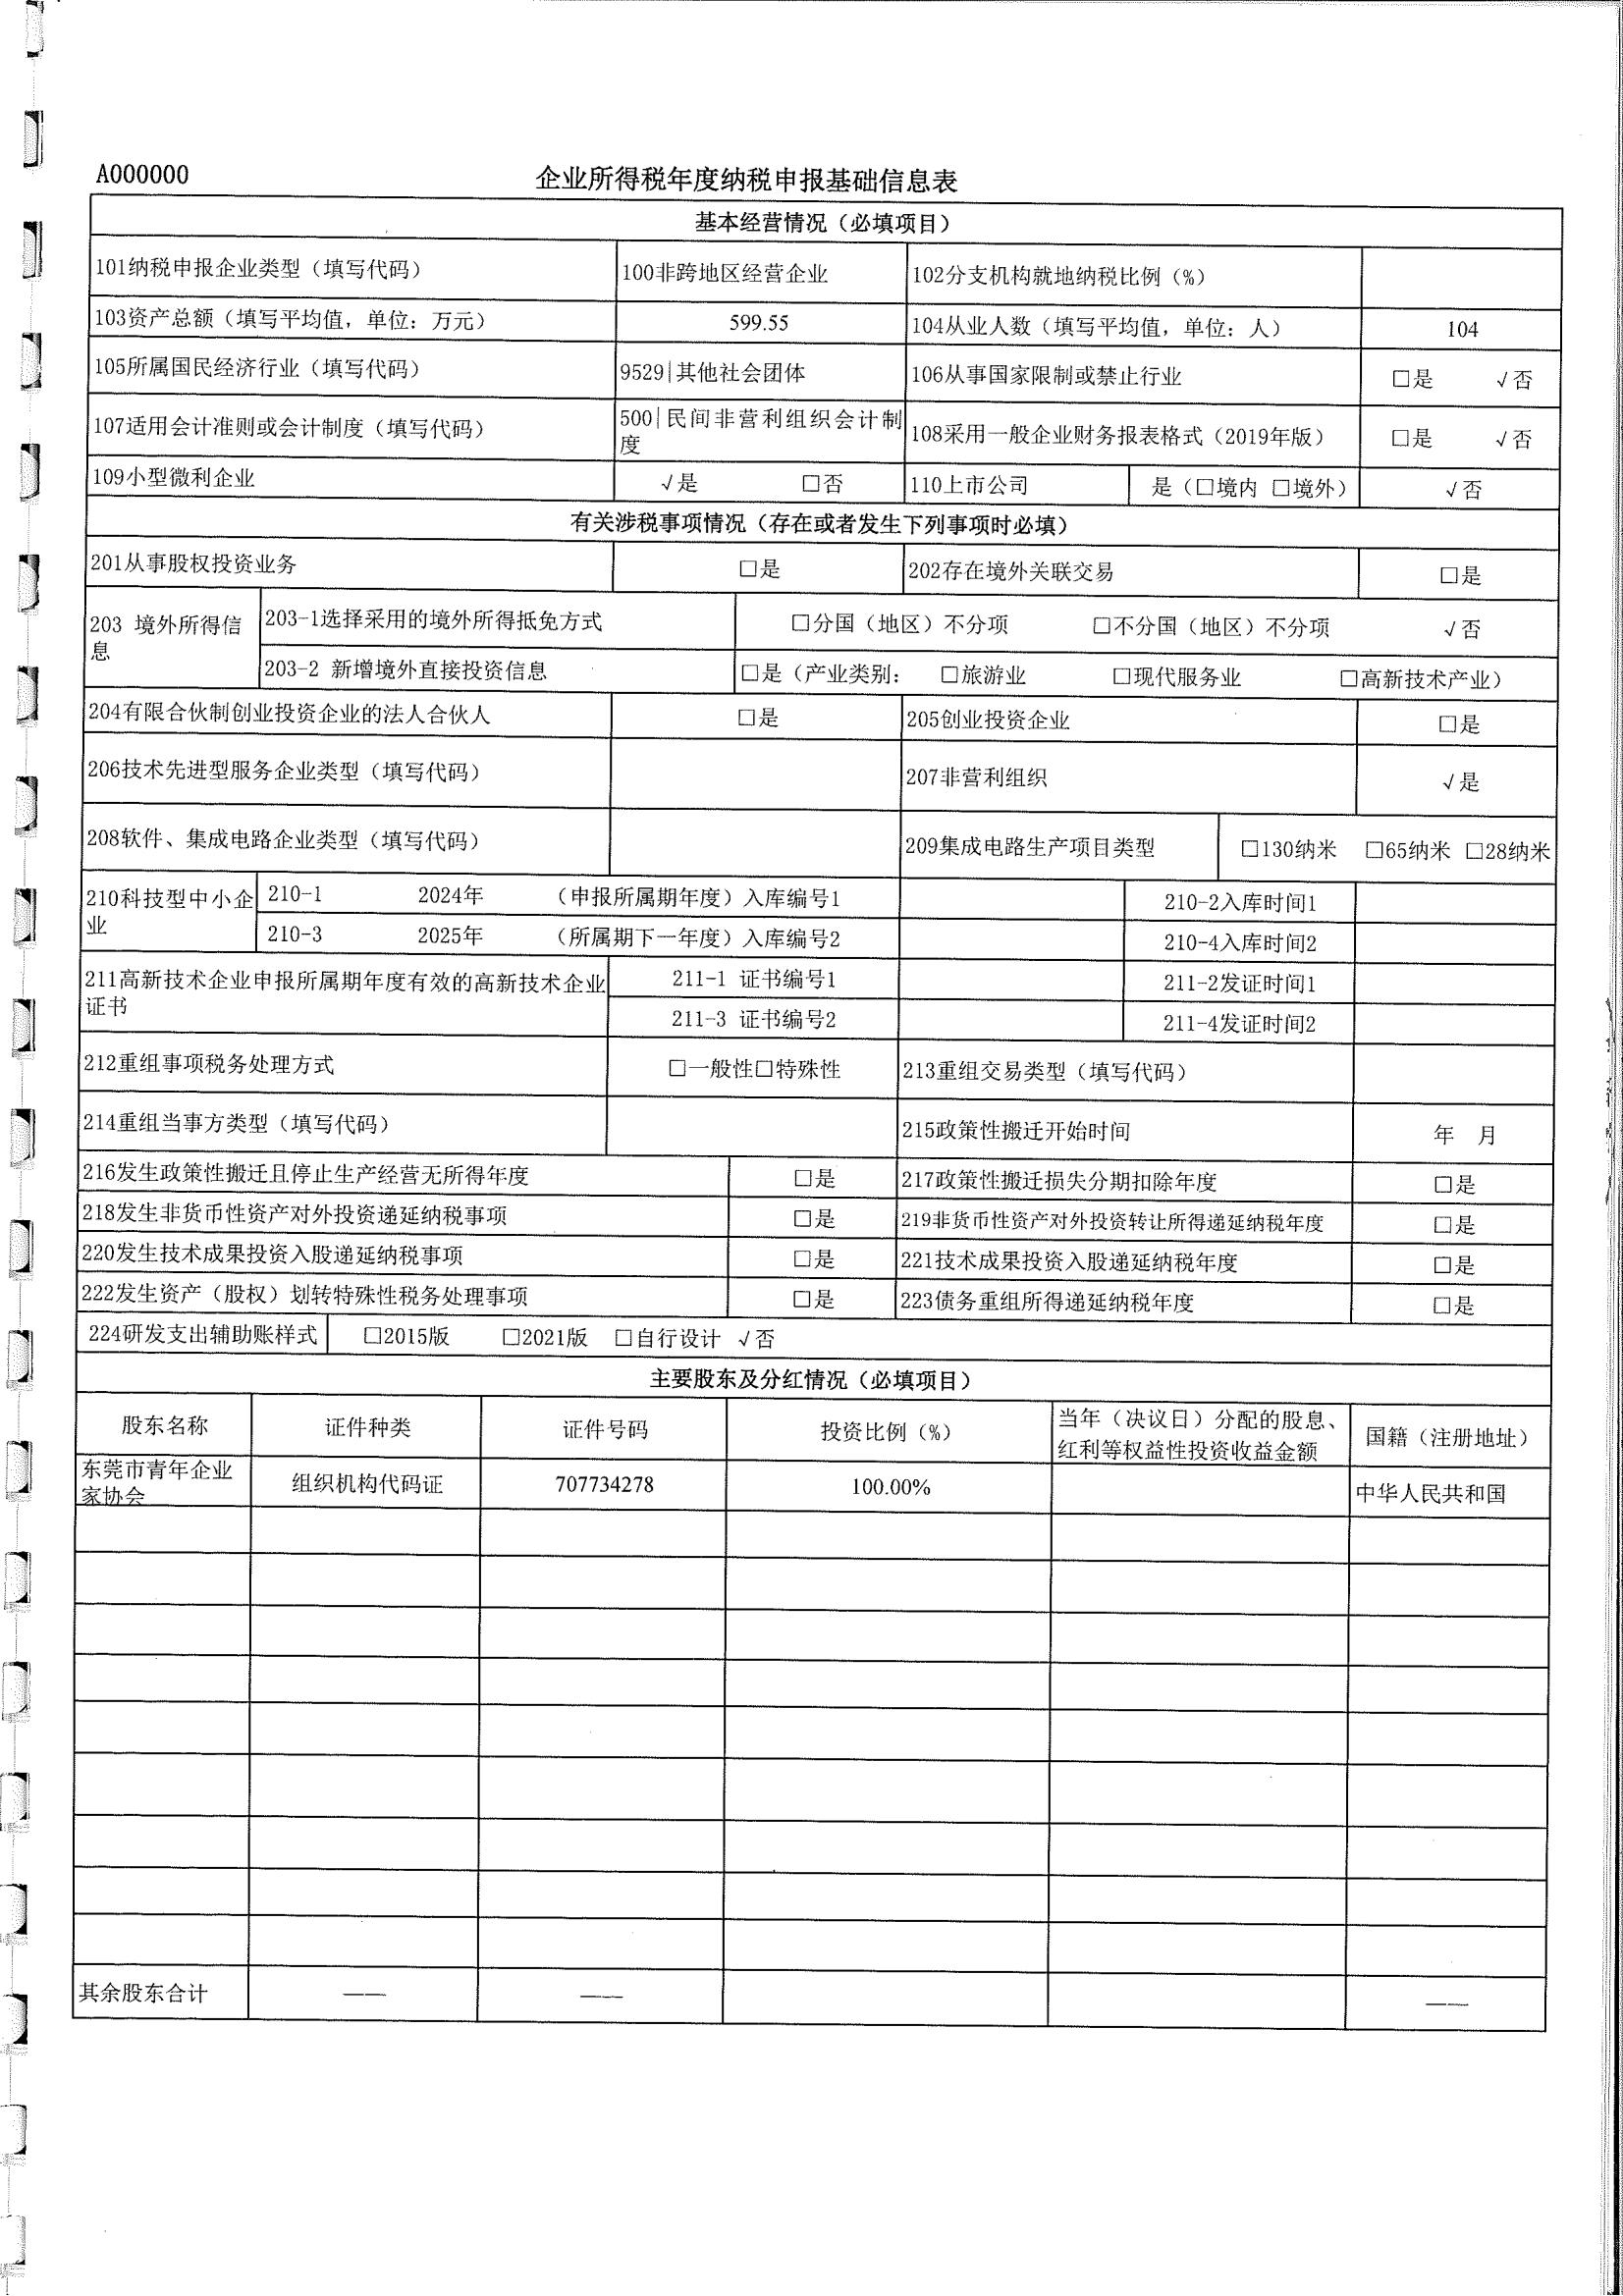 A000000
企业所得税年度纳税申报基础信息表
基本经营情况（必填项目）
101纳税申报企业类型（填写代码） 100非跨地区经营企业 102分支机构就地纳税比例（%）
103资产总额（填写平均值，单位：万元） 599.55 104从业人数（填写平均值，单位：人） 104
105所属国民经济行业（填写代码） 9529|其他社会团体 106从事国家限制或禁止行业 □是 √否
107适用会计准则或会计制度（填写代码） 500|民间非营利组织会计制度 108采用一般企业财务报表格式（2019年版） □是 √否
109小型微利企业 √是 □否 110上市公司 是（□境内 □境外） √否
有关涉税事项情况（存在或者发生下列事项时必填）
201从事股权投资业务 □是 202存在境外关联交易 □是
203 境外所得信息 203-1选择采用的境外所得抵免方式 □分国（地区）不分项 □不分国（地区）不分项 √否
203-2 新增境外直接投资信息 □是（产业类别： □旅游业 □现代服务业 □高新技术产业）
204有限合伙制创业投资企业的法人合伙人 □是 205创业投资企业 □是
206技术先进型服务企业类型（填写代码） 207非营利组织 √是
208软件、集成电路企业类型（填写代码） 209集成电路生产项目类型 □130纳米 □65纳米 □28纳米
210科技型中小企业 210-1 2024年 （申报所属期年度）入库编号1 210-2入库时间1
210-3 2025年 （所属期下一年度）入库编号2 210-4入库时间2
211高新技术企业申报所属期年度有效的高新技术企业证书 211-1 证书编号1 211-2发证时间1
211-3 证书编号2 211-4发证时间2
212重组事项税务处理方式 □一般性□特殊性 213重组交易类型（填写代码）
214重组当事方类型（填写代码） 215政策性搬迁开始时间 年 月
216发生政策性搬迁且停止生产经营无所得年度 □是 217政策性搬迁损失分期扣除年度 □是
218发生非货币性资产对外投资递延纳税事项 □是 219非货币性资产对外投资转让所得递延纳税年度 □是
220发生技术成果投资入股递延纳税事项 □是 221技术成果投资入股递延纳税年度 □是
222发生资产（股权）划转特殊性税务处理事项 □是 223债务重组所得递延纳税年度 □是
224研发支出辅助账样式 □2015版 □2021版 □自行设计 √否
主要股东及分红情况（必填项目）
股东名称 证件种类 证件号码 投资比例（%） 当年（决议日）分配的股息、红利等权益性投资收益金额 国籍（注册地址）
东莞市青年企业家协会 组织机构代码证 707734278 100.00% 中华人民共和国
其余股东合计 —— —— ——